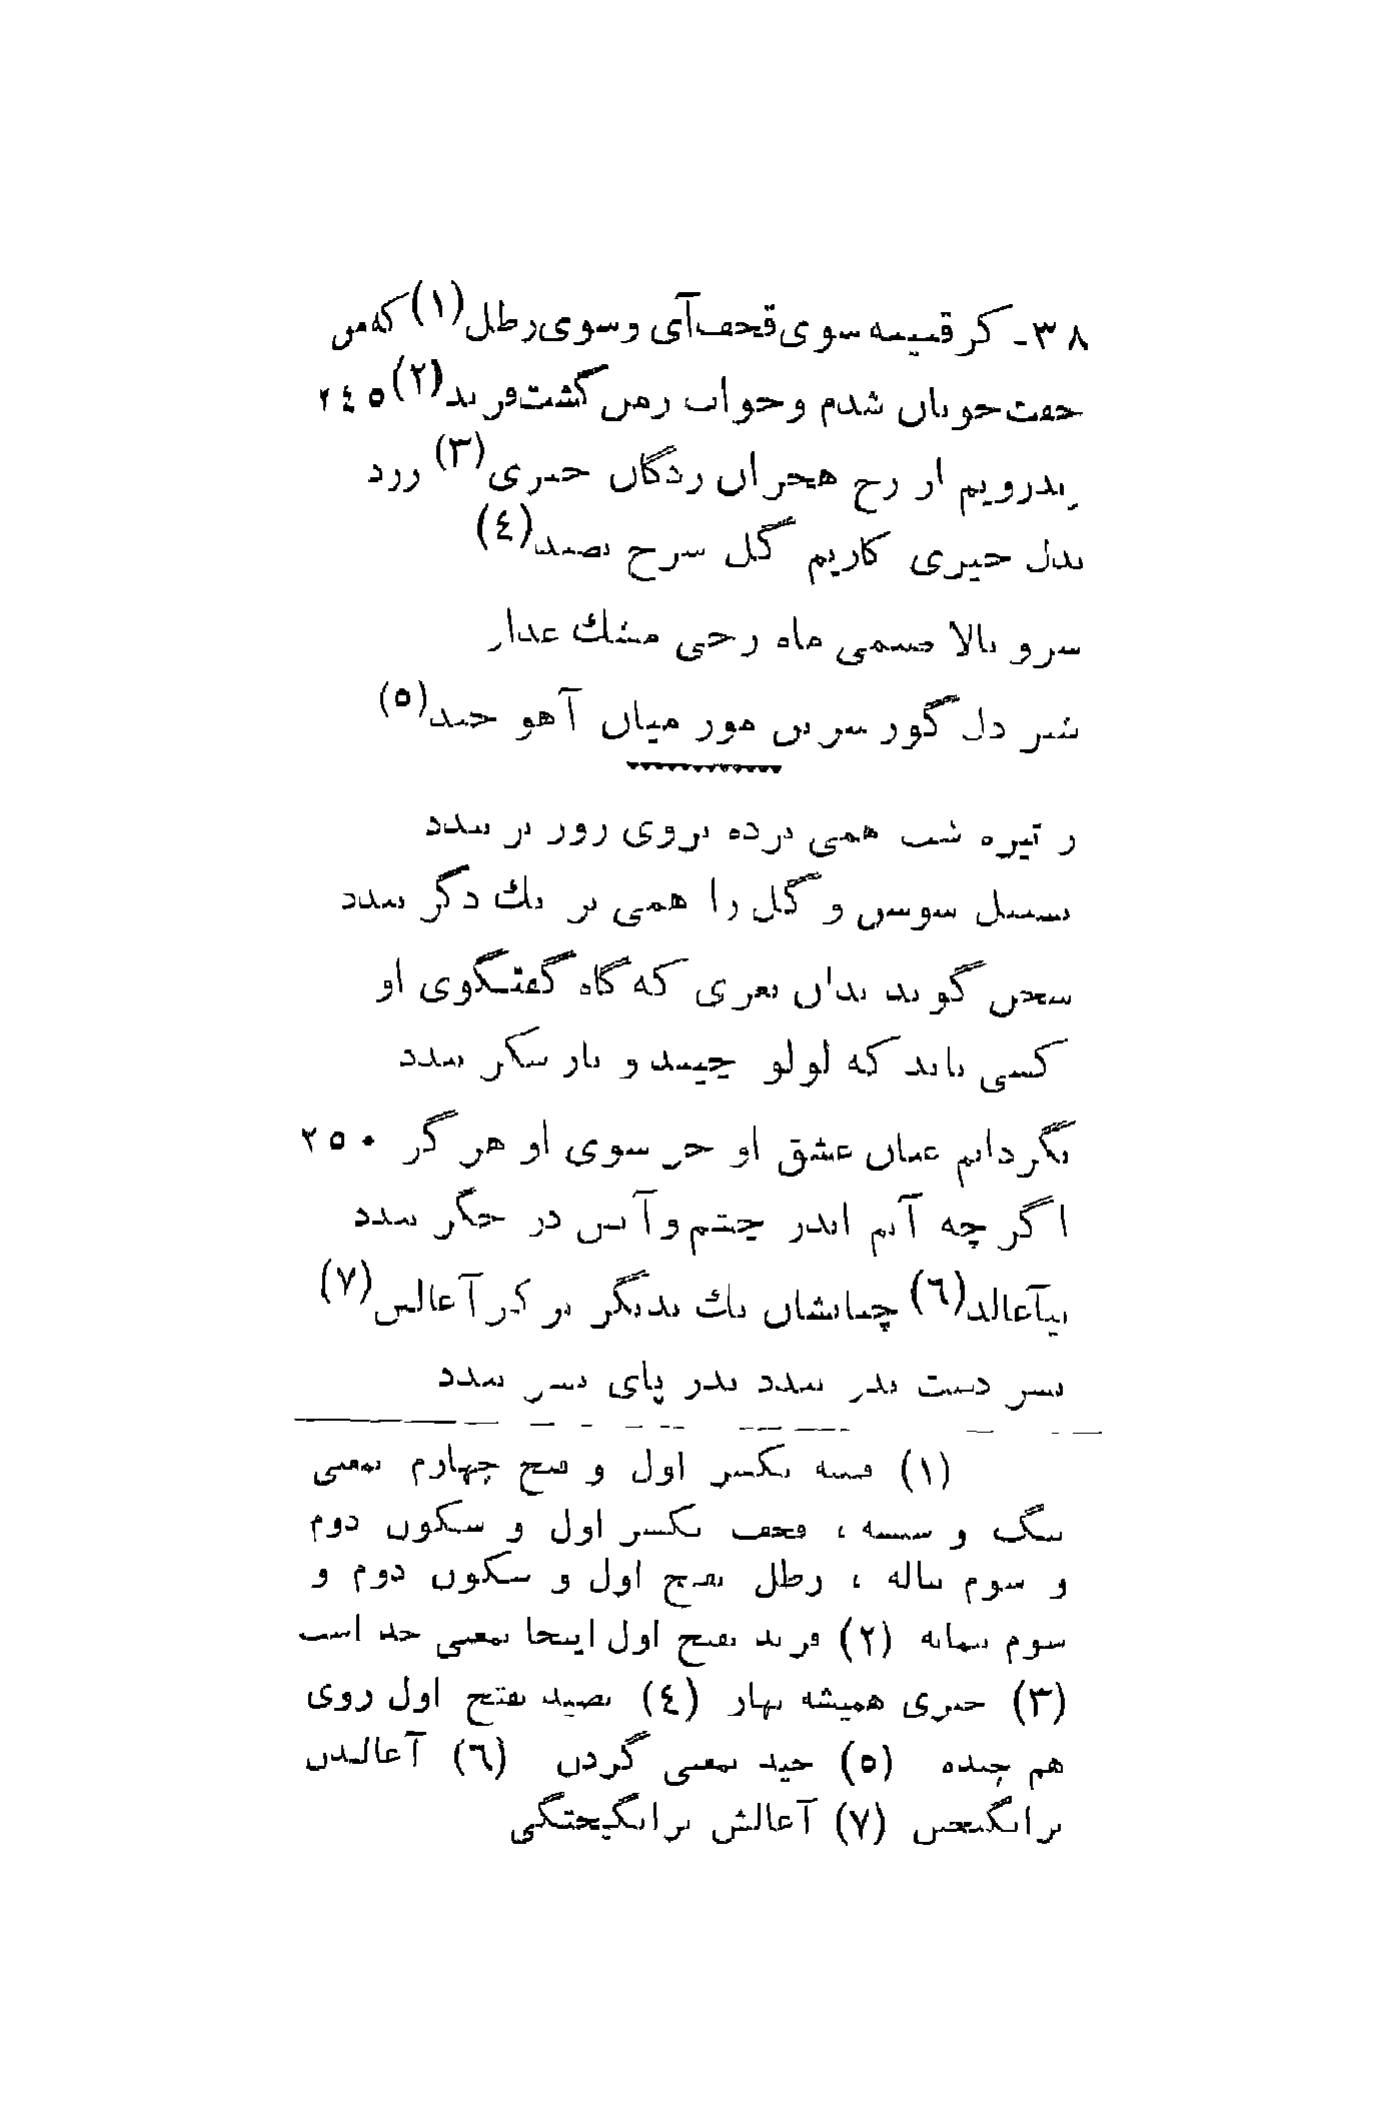 ۳۸- کز قنینه سوی قحف آی و سوی رطل (۱) که من
جفت خوبان شدم و خواب ز من گشت فرید (۲) ۲۴۵
بدرویم از رخ هجران زدگان خیری (۳) زرد
بدل خیری کاریم گل سرخ نضید (۴)
سرو بالا صنمی ماه رخی مشك عذار
شیر دل گور سرین مور میان آهو جید (۵)
ز تیره شب همی پرده بروی روز بر بندد
سنبل سوسن و گل را همی بر یك دگر بندد
سخن گوید بدان نغزی که گاه گفتگوی او
کسی باید که لولو چیند و بار شکر بندد
نگردانم عنان عشق او جز سوی او هرگز ۲۵۰
اگر چه آبم اندر چشم و آتش در جگر بندد
بیآغالد (۶) چنانشان یك بدیگر بر کز آغالش (۷)
پسر دست پدر بندد پدر پای پسر بندد
(۱) قنینه بکسر اول و فتح چهارم بمعنی
و شیشه ، قحف بکسر اول و سکون دوم
و سوم پیاله ، رطل بفتح اول و سکون دوم و
سوم پیمانه (۲) فرید بفتح اول اینجا بمعنی جدا است
(۳) خیری همیشه بهار (۴) نضید بفتح اول روی
هم چیده (۵) جید بمعنی گردن (۶) آغالیدن
برانگیختن (۷) آغالش برانگیختگی